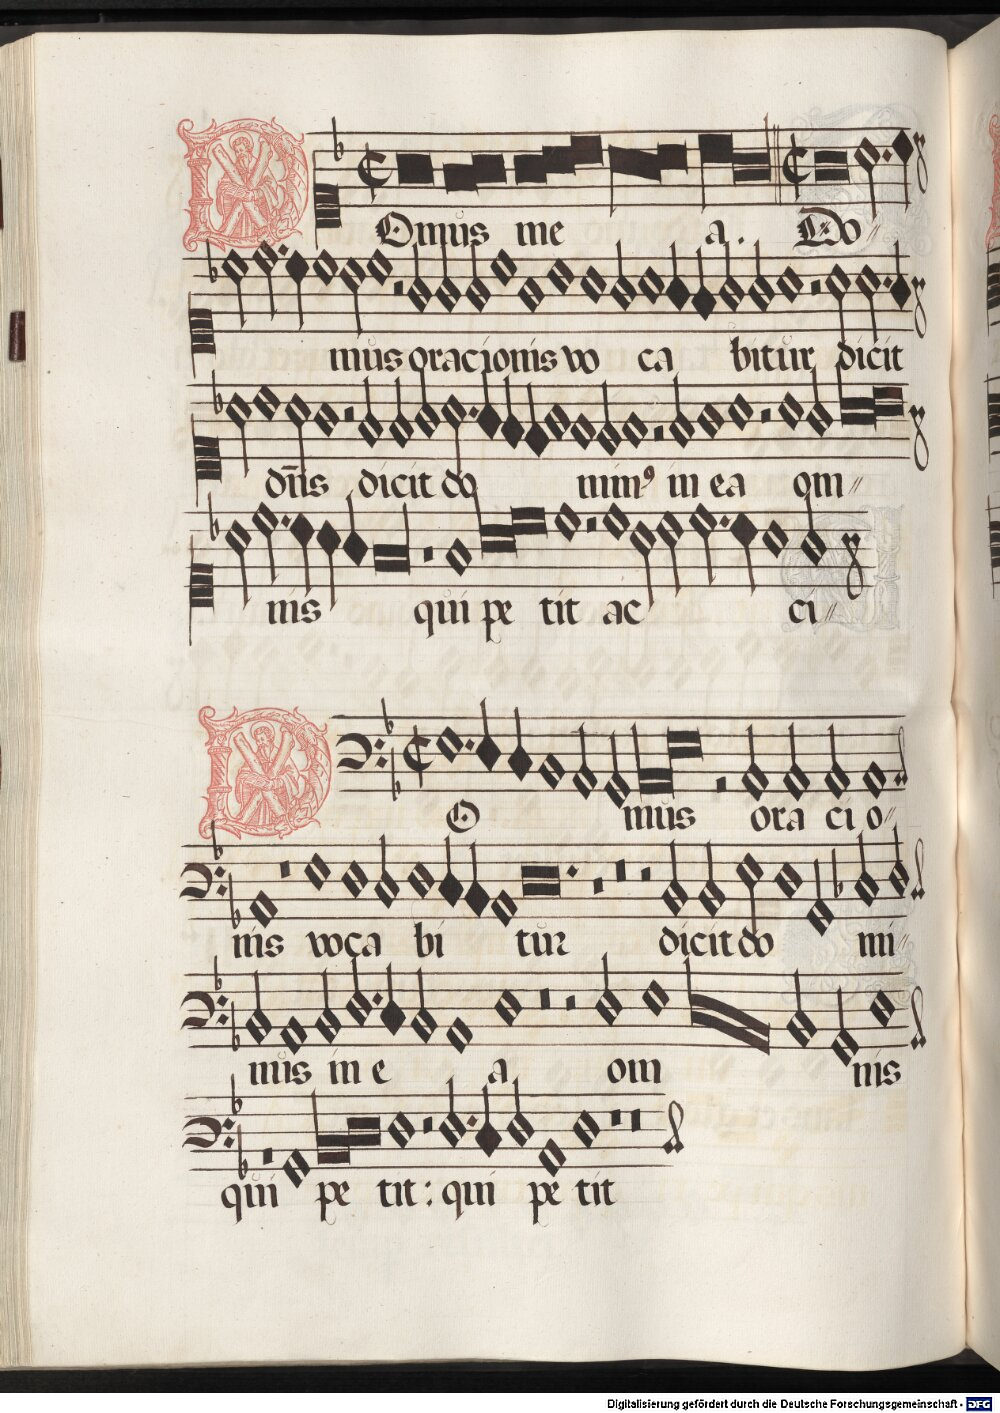 DOmus me a. Do
mus oracionis vo ca bitur dicit
dn̄s dicit do minꝰ in ea om
nis qui pe tit ac ci
DO mus ora ci o
nis voca bi tur dicit do mi
nus in e a om nis
qui pe tit: qui pe tit
Digitalisierung gefördert durch die Deutsche Forschungsgemeinschaft - DFG